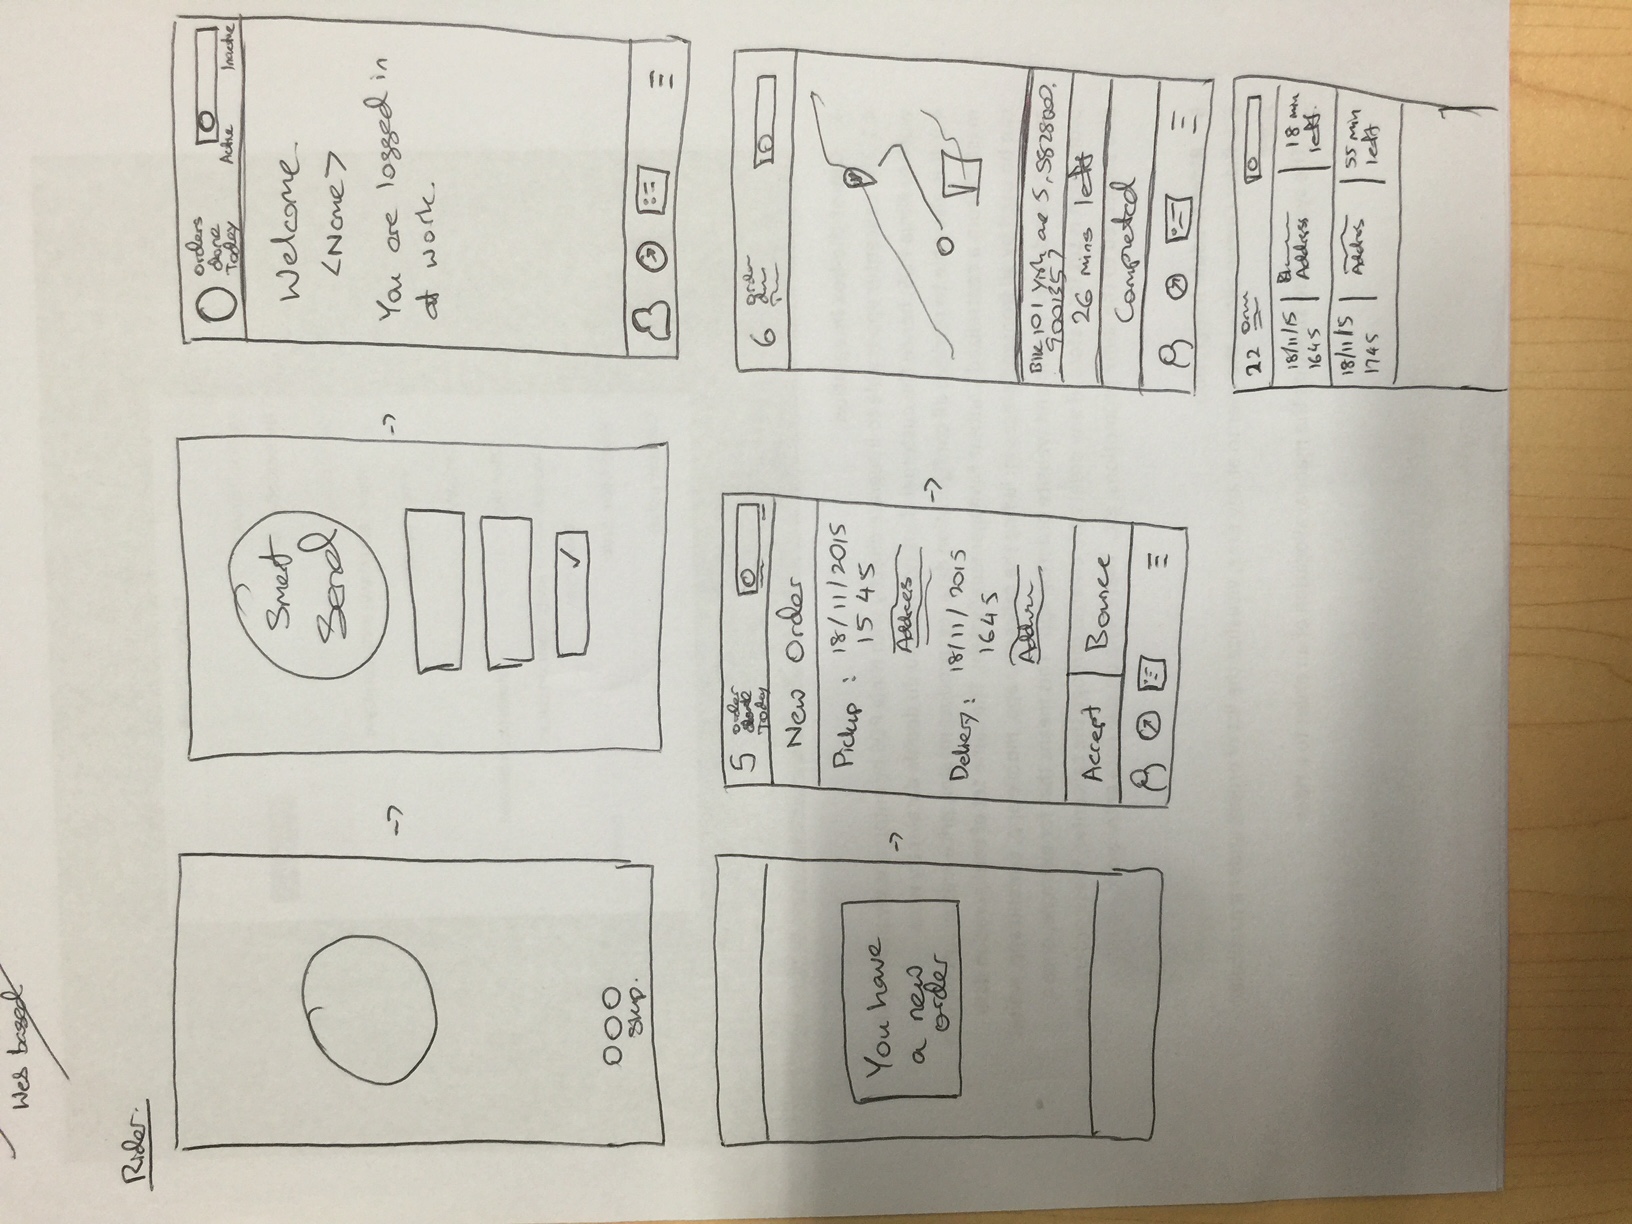 Web based
Rider.
skip.
Smart
Send
orders
done
Today
Active
Inactive
Welcome
<Name>
You are logged in
at work.
You have
a new
order
5
order
done
Today
New Order
Pickup : 18/11/2015
1545
Address
Delivery : 18/11/2015
1645
Address
Accept
Bounce
6
order
26 mins left
Completed
22
18/11/15
1645
Address
18 min
left.
18/11/15
1745
Address
55 min
left